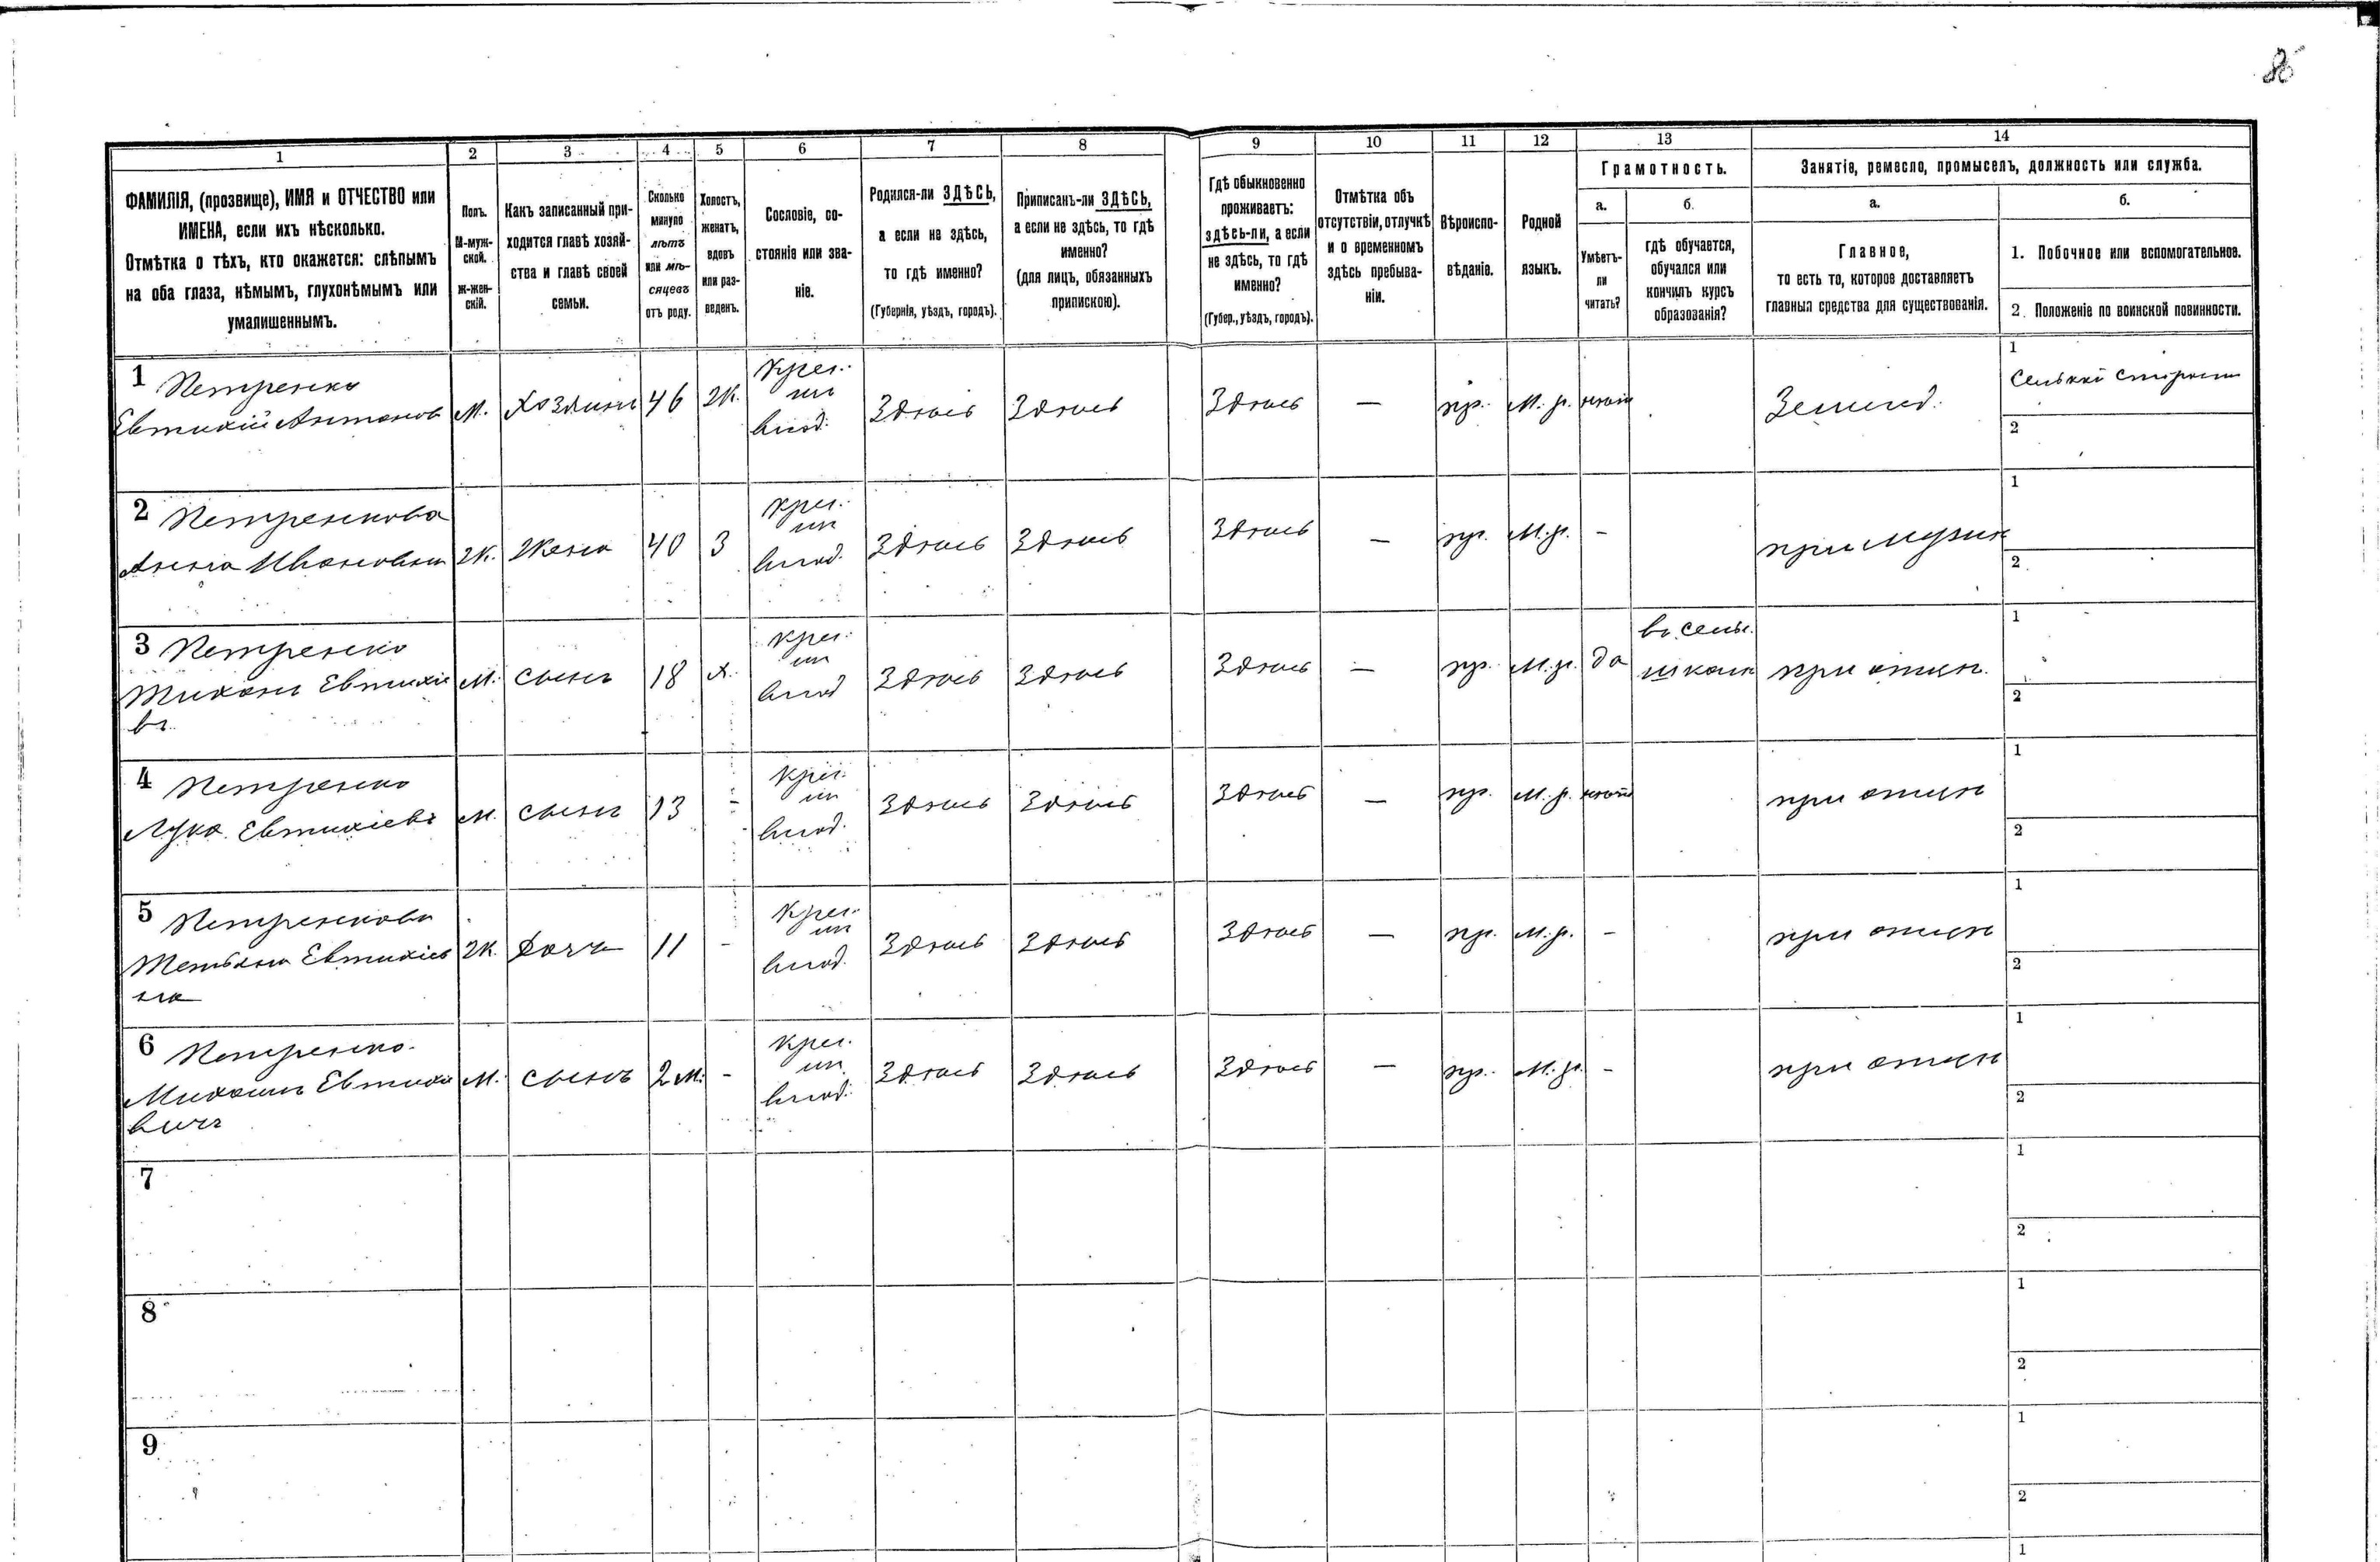 86
1 2 3 4 5 6 7 8 9 10 11 12 13 14
ФАМИЛІЯ, (прозвище), ИМЯ и ОТЧЕСТВО или
ИМЕНА, если ихъ нѣсколько.
Отмѣтка о тѣхъ, кто окажется: слѣпымъ
на оба глаза, нѣмымъ, глухонѣмымъ или
умалишеннымъ.
Полъ.
М-муж-
ской.
ж-жен-
скій.
Какъ записанный при-
ходится главѣ хозяй-
ства и главѣ своей
семьи.
Сколько
минуло
лѣтъ
или мѣ-
сяцевъ
отъ роду.
Холостъ,
женатъ,
вдовъ
или раз-
веденъ.
Сословіе, со-
стояніе или зва-
ніе.
Родился-ли ЗДѢСЬ,
а если не здѣсь,
то гдѣ именно?
(Губернія, уѣздъ, городъ).
Приписанъ-ли ЗДѢСЬ,
а если не здѣсь, то гдѣ
именно?
(для лицъ, обязанныхъ
припискою).
Гдѣ обыкновенно
проживаетъ:
здѣсь-ли, а если
не здѣсь, то гдѣ
именно?
(Губер., уѣздъ, городъ).
Отмѣтка объ
отсутствіи, отлучкѣ
и о временномъ
здѣсь пребыва-
ніи.
Вѣроиспо-
вѣданіе.
Родной
языкъ.
Грамотность.
а.
Умѣетъ-
ли
читать?
б.
гдѣ обучается,
обучался или
кончилъ курсъ
образованія?
Занятіе, ремесло, промыселъ, должность или служба.
а.
Главное,
то есть то, которое доставляетъ
главныя средства для существованія.
б.
1. Побочное или вспомогательное.
2. Положеніе по воинской повинности.
1 Петренко
Евтихій Антонов
М. Хозяинъ 46 Ж.
Крес.
из
влад.
Здѣсь Здѣсь Здѣсь — пр. М. р. нѣтъ Землед.
1 Сельскій Староста
2
2 Петренкова
Анна Ивановна
Ж. Жена 40 З
Крес.
из
влад.
Здѣсь Здѣсь Здѣсь — пр. М. р. - при мужѣ
1
2
3 Петренко
Тихонъ Евтихіе
въ
М. сынъ 18 Х.
Крес.
из
влад
Здѣсь Здѣсь Здѣсь — пр. М. р. да
въ сельс.
школѣ
при отцѣ
1
2
4 Петренко
Лука Евтихіевъ
М. сынъ 13 -
Крес.
из
влад.
Здѣсь Здѣсь Здѣсь — пр. М. р. нѣтъ при отцѣ
1
2
5 Петренкова
Тетьяна Евтихіев
на
Ж. Дочь 11 -
Крес.
из
влад.
Здѣсь Здѣсь Здѣсь — пр. М. р. - при отцѣ
1
2
6 Петренко
Михаилъ Евтихи
вичъ
М. сынъ 2 м. -
Крес.
из
влад.
Здѣсь Здѣсь Здѣсь — пр. М. р. - при отцѣ
1
2
7
1
2
8
1
2
9
1
2
1